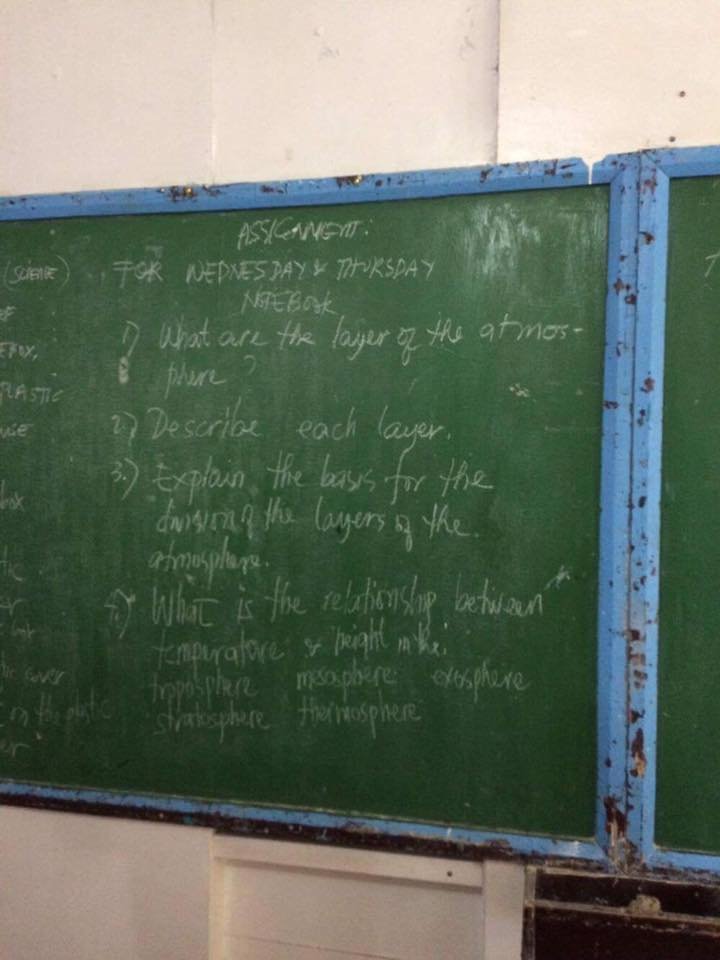 ASSIGNMENT:
FOR WEDNESDAY & THURSDAY
NOTEBOOK
1) What are the layer of the atmos-
phere?
2.) Describe each layer.
3.) Explain the basis for the
division of the layers of the
atmosphere.
4.) What is the relationship between
tempurature & height in the:
troposphere mesosphere exosphere
stratosphere thermosphere
(SCIENCE)
PLASTIC
box
cover
on the plastic